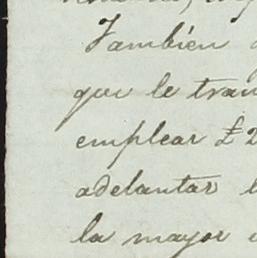 También
que le
emplear £2
adelantar
la mayor